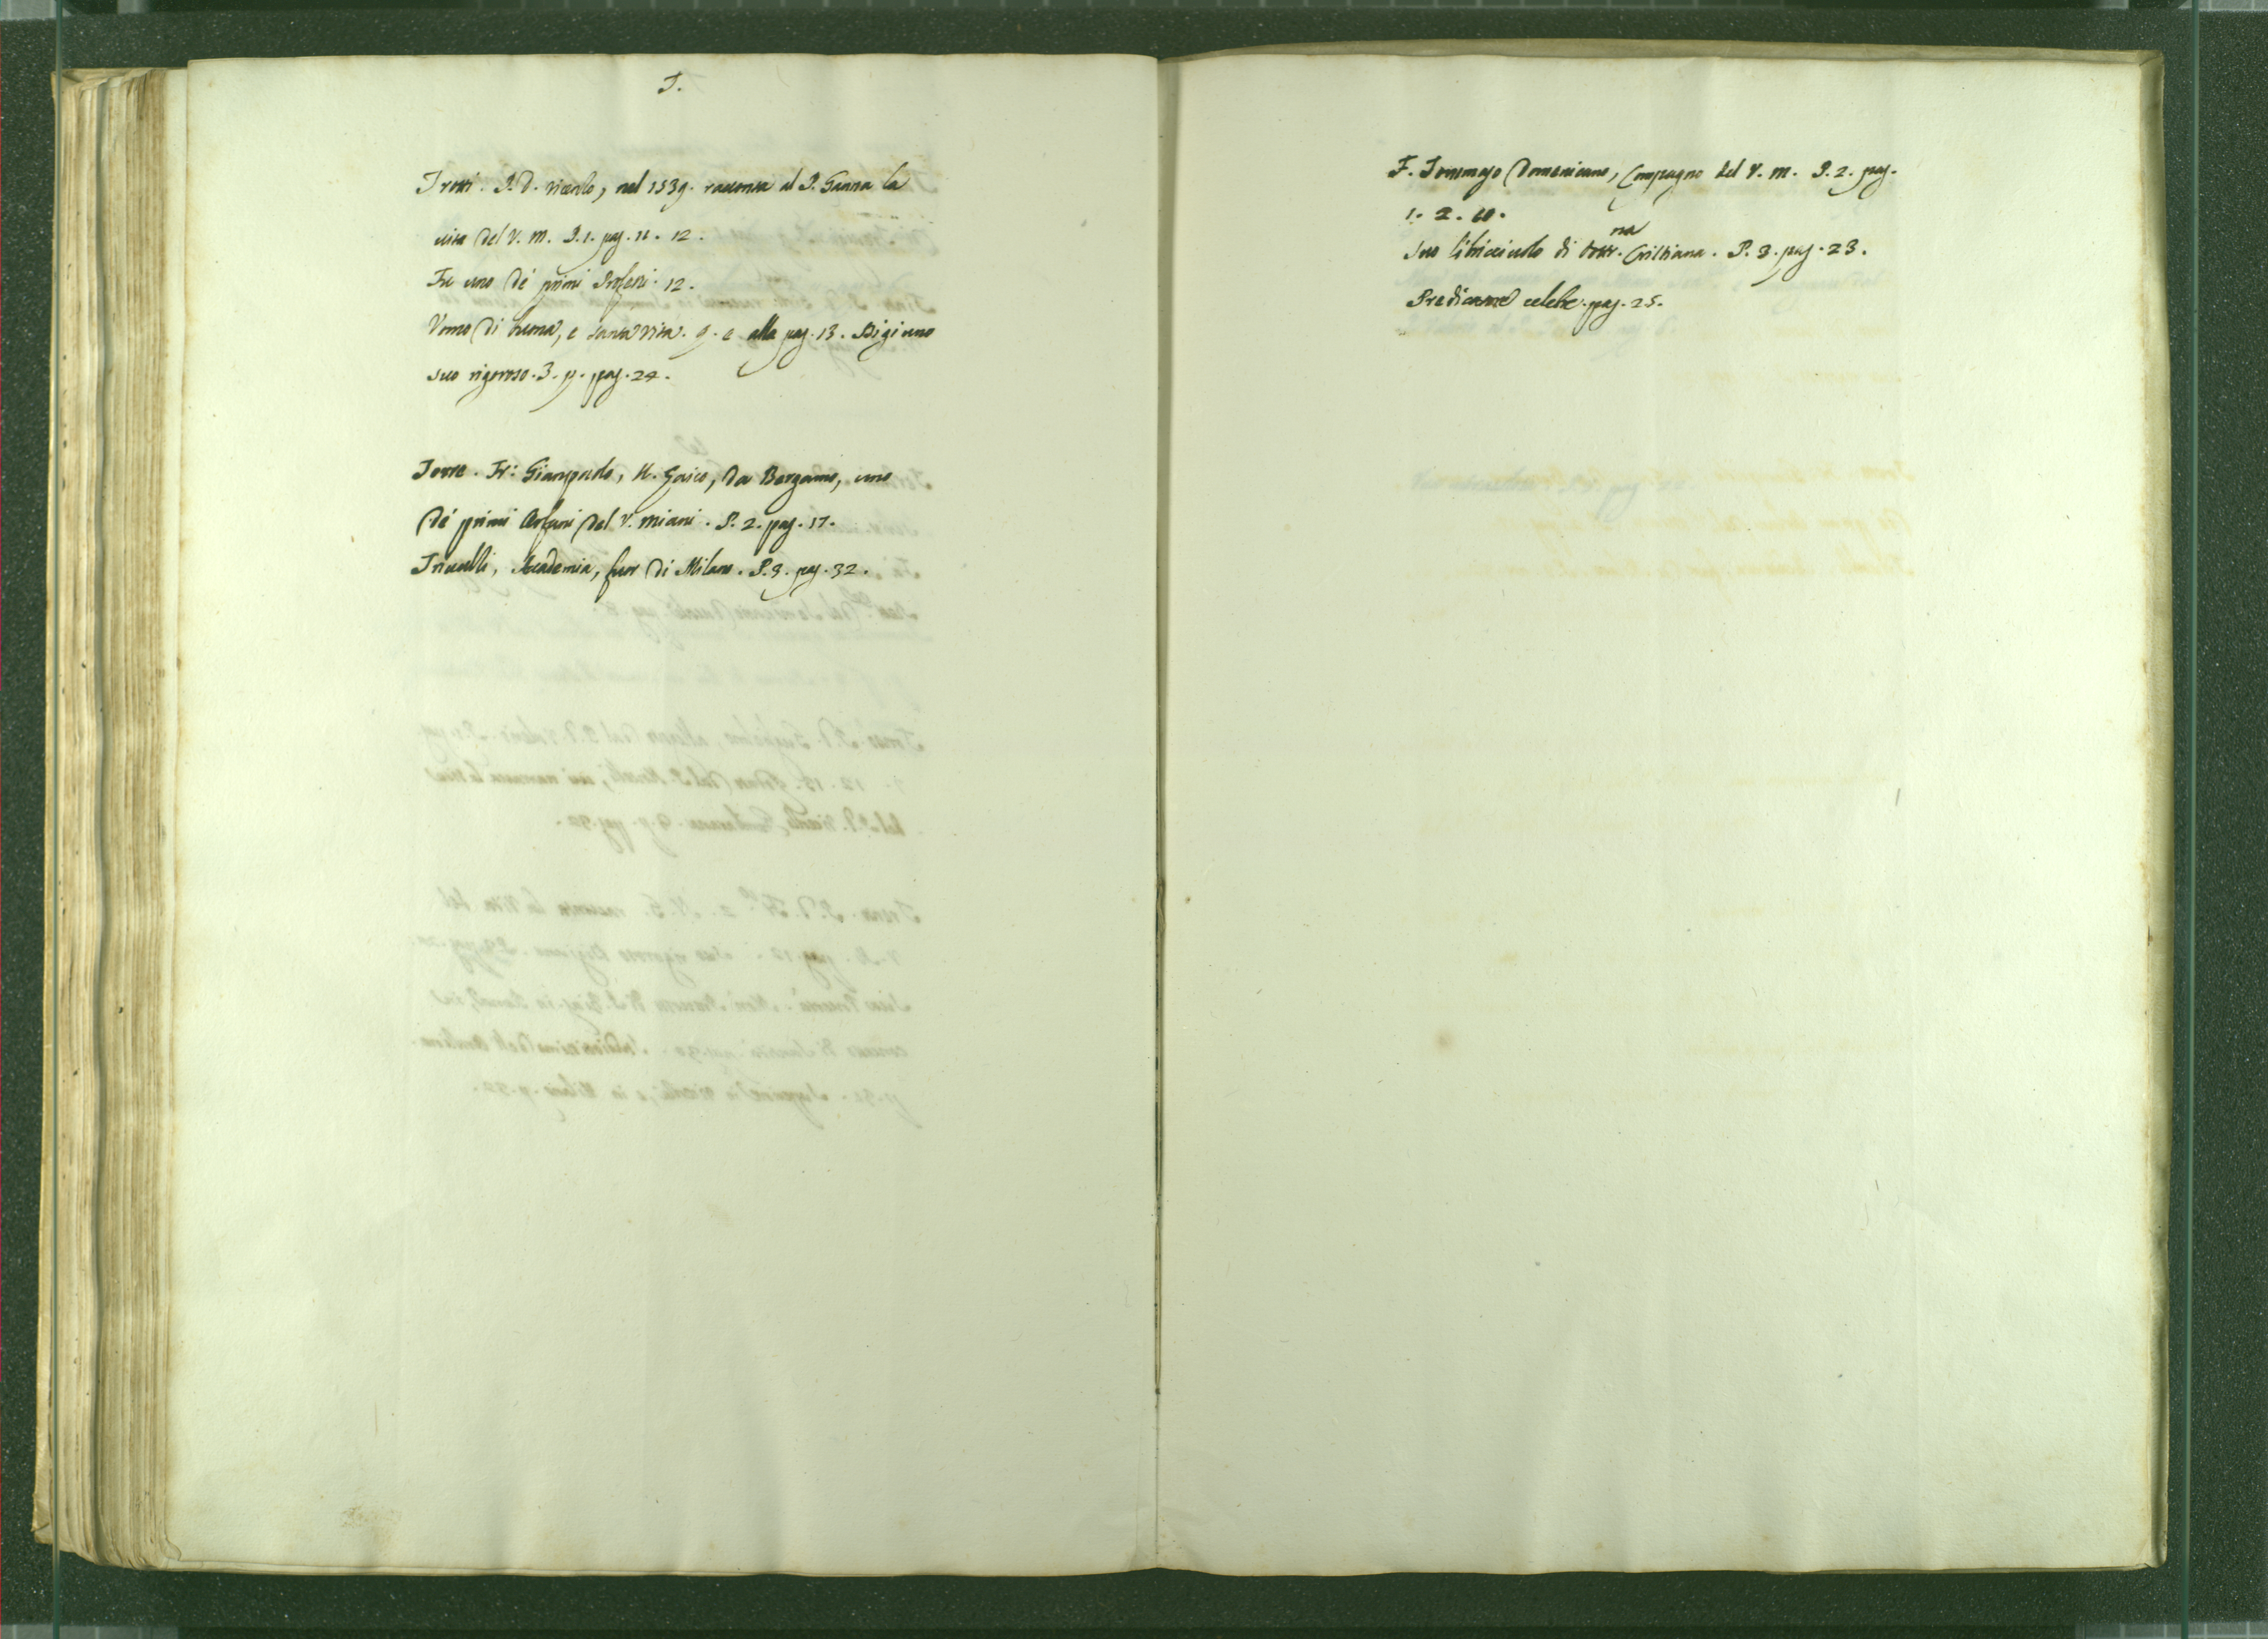 T.
Trotti. P. D. Nicolo, nel 1539. racconta al P. Ganna la
vita del V. M. P. 1. pag. 11. 12.
Fu uno de' primi Professi. 12.
Vomo di buona, e santa vita. 9. e alla pag. 13. Digiuno
suo rigoroso. 3. p. pag. 24.
Torre. Fr: Giampaolo, da Bergamo, uno
de' primi Orfani del V. Miani. P. 2. pag. 17.
Trivulti, Academia, fuor di Milano. P. 3. pag. 32.
F. Tommaso Domenicano, Compagno del V. M. P. 2. pag.
1. 2. 60.
Suo libricciuolo di Dottr.na Cristiana. P. 3. pag. 23.
Predicatore celebre. pag. 25.